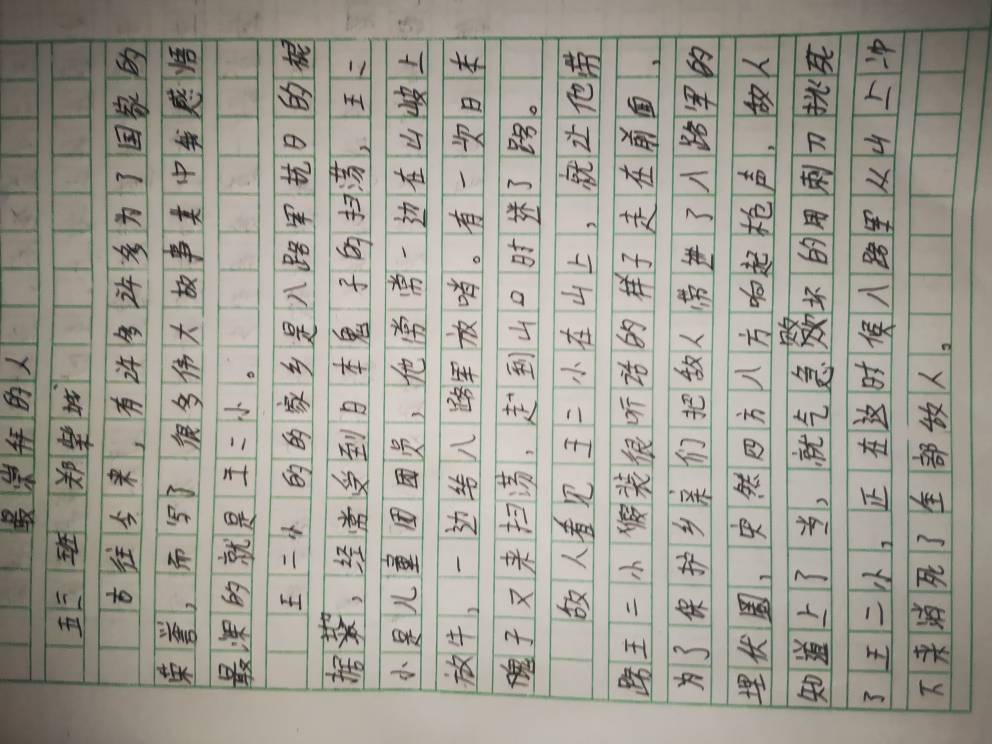 最崇拜的人
五二班 郑学城
古往今来，有许多许多为了国家的
荣誉，而写了很多伟大故事其中我感悟
最深的就是王二小。
王二小的的家乡是八路军抗日的根
据地，经常受到日本鬼子的扫荡，王二
小是儿童团团员，他常常一边在山坡上
放牛，一边给八路军放哨。有一次日本
鬼子又来扫荡，走到山口时迷了路。
敌人看见王二小在山上，就让他带
路王二小假装很听话的样子走在前面，
为了保护乡亲们把敌人带进了八路军的
埋伏圈，突然四方八方响起枪声，敌人
知道上了当，就气急败坏的用刺刀挑死
了王二小，正在这时候八路军从山上冲
下来消死了全部敌人。